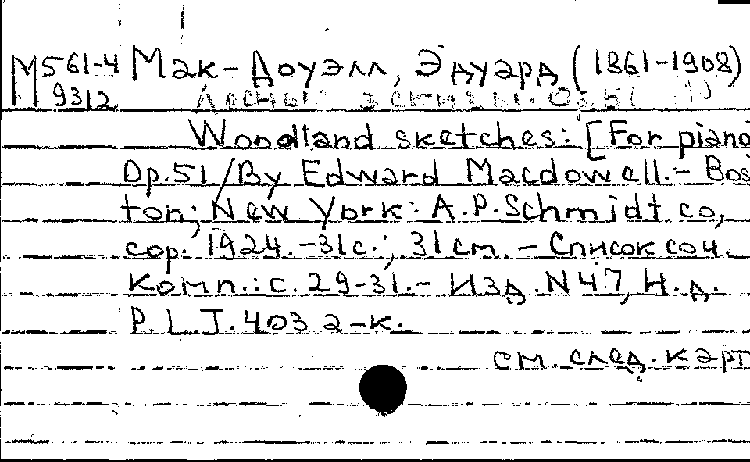 М561-4 Мак-Доуэлл, Эдуард (1861-1908)
9312 Лесные эскизы. Op. 51
Woodland sketches: [For piano
Op.51/By Edward Macdowell.- Bos
ton; New York: A.P.Schmidt co,
cop. 1924.-31с.; 31см. - Список соч.
Комп.: с. 29-31.- Изд. N 47, Н.д.
P.L.J.403 2-к.
см. след. карт